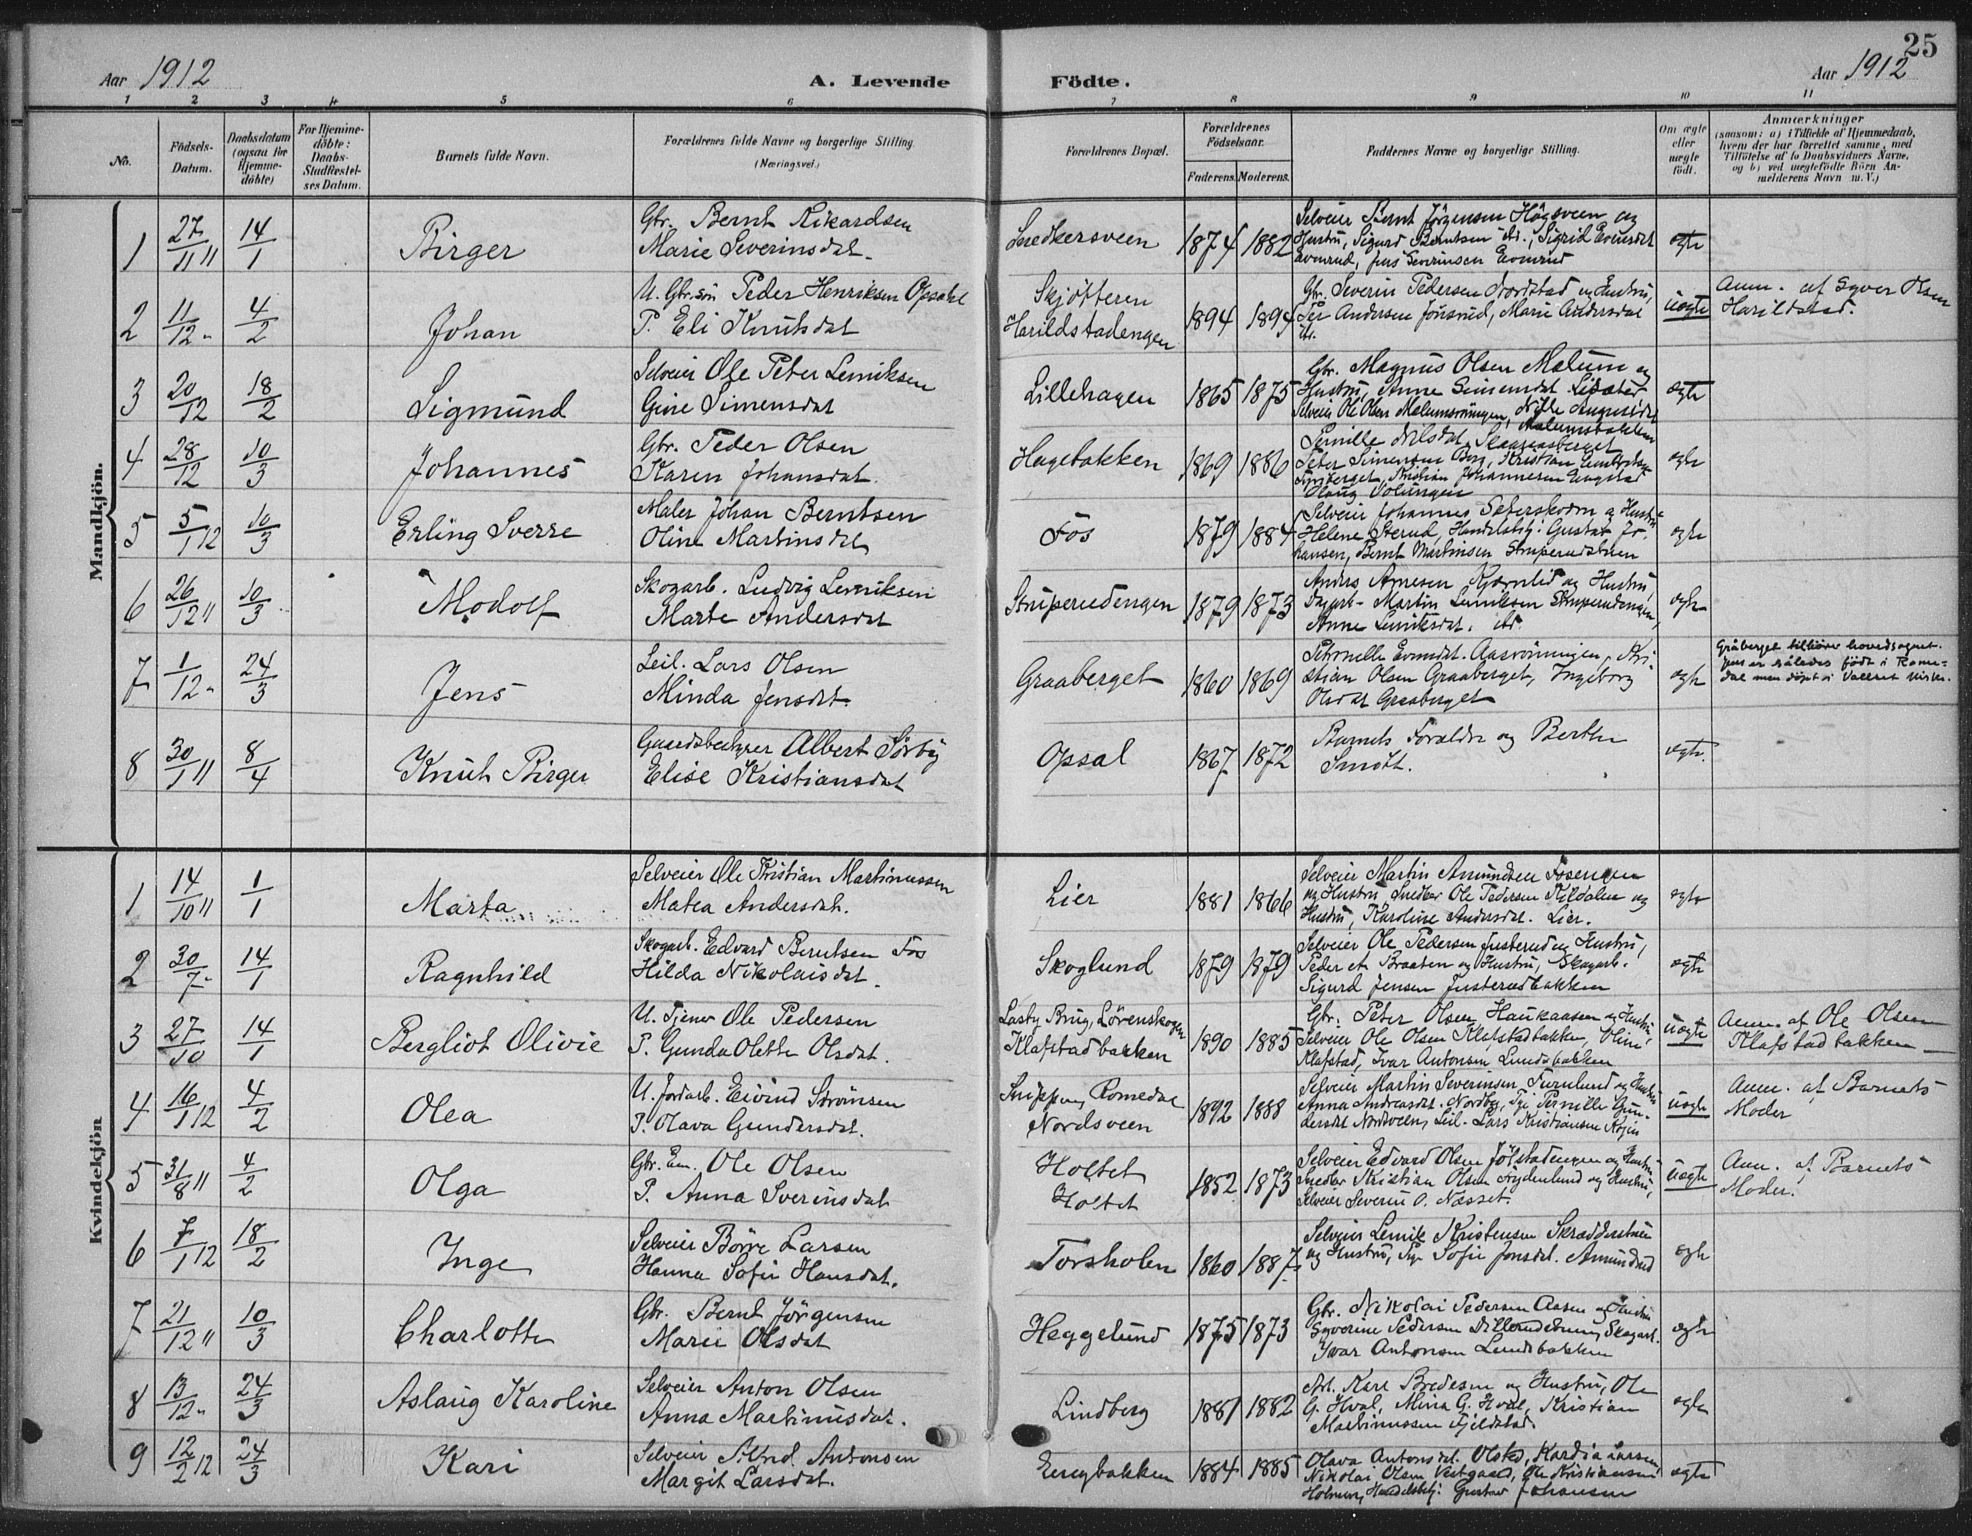 25
Aar 1912
A. Levende Födte.
Aar 1912
1 2 3 4 5 6 7 8 9 10 11
No.
Födsels-Datum.
Daabsdatum (ogsaa for Hjemme-döbte)
For Hjemme-döbte: Daabs-Stadfæstel-ses Datum.
Barnets fulde Navn.
Forældrenes fulde Navne og borgerlige Stilling. (Næringsvei.)
Forældrenes Bopæl.
Forældrenes Födselsaar.
Faderens. Moderens.
Faddernes Navne og borgerlige Stilling.
Om ægte eller uægte födt.
Anmærkninger
(saasom: a) i Tilfælde af Hjemmedaab, hvem der har forrettet samme, med Tilföielse af to Daabsvidners Navne, og b) ved uægtefödte Börn An-melderens Navn m. V.)
Mandkjön.
1 27/11 11 14/1 Birger
Gbr. Bernt Rikardsen
Marie Severinsdat.
Snedkersveen 1874 1882
Selveier Bernt Jörgensen Högsveen og
Hustru, Sigurd Berntsen
Severinsen Evenrud
egte
2 11/12 - 4/2 Johan
U. Gbr. søn Peder Henriksen Opsahl
P. Eli Knutsdat
Skjøfteren
Harildstadengen 1894 1894
Gbr. Severin Pedersen Nordstad og Hustru,
Per Andersen Jönsrud, Marie Andersdat
uegte
Anm. af Syver Olsen
Harildstad.
3 20/12 18/2 Sigmund
Selveier Ole Peter Lemiksen
Gine Simensdat
Lillehagen 1865 1875
Gbr. Magnus Olsen Malum og
Hustru, Anne Simensdat
Selveier Ole Olsen
egte
4 28/12 10/3 Johannes
Gbr. Peder Olsen
Karen Johansdat.
Hagebakken 1869 1886
Pernille Nilsdat.
Peter Simensen Berg, Kristian
Kristian Johannesen
egte
5 5/1 12 10/3 Erling Sverre
Maler Johan Berntsen
Oline Martinsdat
Fos 1879 1884
Selveier Johannes Seterskodn og Hustru
Helene Sterud, Handelsbtj. Gustav Jo-
hansen, Bernt Martinsen
egte
6 26/12 11 10/3 Modolf
Skogarb. Ludvig Lemiksen
Marte Andersdat
Struperudengen 1879 1873
Anders Arnesen Kjernlid og Hustru,
Dagarb. Martin Lemiksen Struperudengen,
Anne Lemiksdat. sts.
egte
7 1/12 - 24/3 Jens
Leil. Lars Olsen
Minda Jensdat.
Graaberget 1860 1869
Petronelle Evensdat. Aasrönningen, Kri-
stian Olsen Graaberget, Ingeborg
Olsdat Graaberget
egte
Gråberget tilhører hovedsognet.
Jens er således født i Rome-
dal men döpt i Vallset kirke.
8 30/1 11 8/4 Knut Birger
Gaardsbestyrer Albert Sørby
Elise Kristiansdat
Opsal 1867 1872
Barnets Forældre og Berthe
Smöt.
egte.
Kvindekjön
1 14/10 11 1/1 Marta
Selveier Ole Kristian Martinussen
Matea Andersdat.
Lier 1881 1866
Selveier Martin Amundsen Fosengen
og Hustru, Snedker Ole Pedersen Kildalen og
Hustru, Karoline Andersdat. Lier.
egte
2 30/7 - 14/1 Ragnhild
Skogarb. Edvard Berntsen Fos
Hilda Nikolaisdat.
Skoglund 1879 1879
Selveier Ole Pedersen Justerud og Hustru,
Peder et. Braaten og Hustru, Skogarb.
Sigurd Jensen Justerudbakken
egte
3 27/10 14/1 Bergliot Olivie
U. Tjener Ole Pedersen
P. Gunda Olette Olsdat.
Lasby Brug, Lørenskogen
Klafstadbakken 1890 1885
Gbr. Peter Olsen Haukaasen og Hustru,
Selveier Ole Olsen Klafstadbakken, Oline
Klafstad, Ivar Antonsen Lundsbakken
uegte
Anm. af Ole Olsen
Klafstadbakken
4 16/1 12 4/2 Olea
U. Jordarb. Eivind Sörensen
P. Olava Gundersdat.
Romedal
Nordsveen 1892 1888
Selveier Martin Severinsen Furulund og Hustru
Anna Andreasdat. Nordby, Pernille Gun-
dersdat Nordsveen, Leil. Lars Kristiansen
uegte
Anm. af Barnets
Moder
5 31/8 11 4/2 Olga
Gbr. Em. Ole Olsen
P. Anna Sverinsdat
Holtet
Holtet 1852 1873
Selveier Edvard Olsen Jölstadengen og Hustru
Snedker Kristian Olsen Nydenlund og Hustru,
Selveier Severin O. Næsset.
uegte
Anm. af Barnets
Moder.
6 7/1 12 18/2 Inge
Selveier Börre Larsen
Hanna Sofie Hansdat.
Torsholen 1860 1887
Selveier Lemik Kristensen Skrædderstuen
og Hustru, Sofie Jonsdat. Amundrud
egte
7 21/12 11 10/3 Charlotte
Gbr. Bernt Jörgensen
Marie Olsdat
Heggelund 1875 1873
Gbr. Nikolai Pedersen Aasen og Hustru
Syverine Pedersen Skogarb.
Ivar Antonsen Lundsbakken
egte
8 13/12 - 24/3 Aslaug Karoline
Selveier Anton Olsen
Anna Martinusdat.
Lindberg 1881 1882
Arb. Karl Bredesen og Hustru, Ole
G. Hval, Mina G. Hval, Kristian
Martinussen Fjeldstad.
egte
9 12/2 12 24/3 Kari
Selveier Alfred Antonsen
Margit Larsdat.
Energbakken 1884 1885
Olava Antonsdat. Olstad,
Nikolai Olsen Vestgaard, Ole Kristiansen
Holmen, Handelsbtj. Gustav Johansen
egte